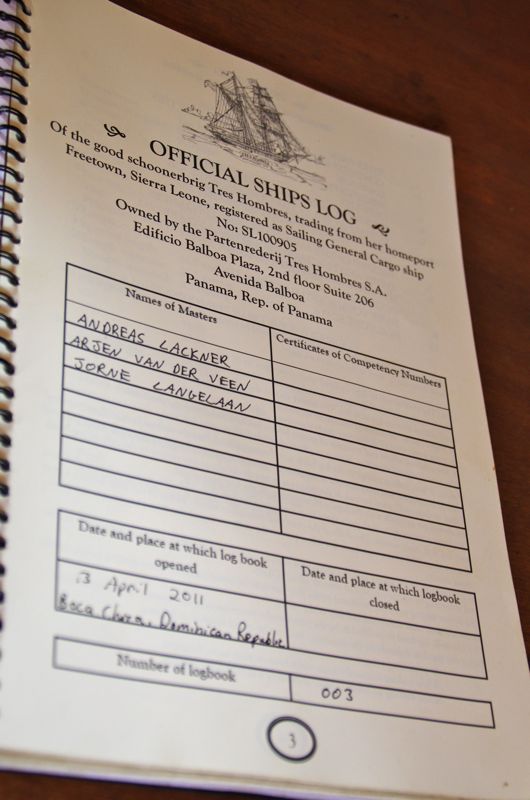 OFFICIAL SHIPS LOG
Of the good schoonerbrig Tres Hombres, trading from her homeport
Freetown, Sierra Leone, registered as Sailing General Cargo ship
No: SL100905
Owned by the Partenrederij Tres Hombres S.A.
Edificio Balboa Plaza, 2nd floor Suite 206
Avenida Balboa
Panama, Rep. of Panama
Names of Masters
Certificates of Competency Numbers
ANDREAS LACKNER
ARJEN VAN DER VEEN
JORNE LANGELAAN
Date and place at which log book
opened
Date and place at which logbook
closed
April 2011
Boca Dominican Republic
Number of logbook
003
3